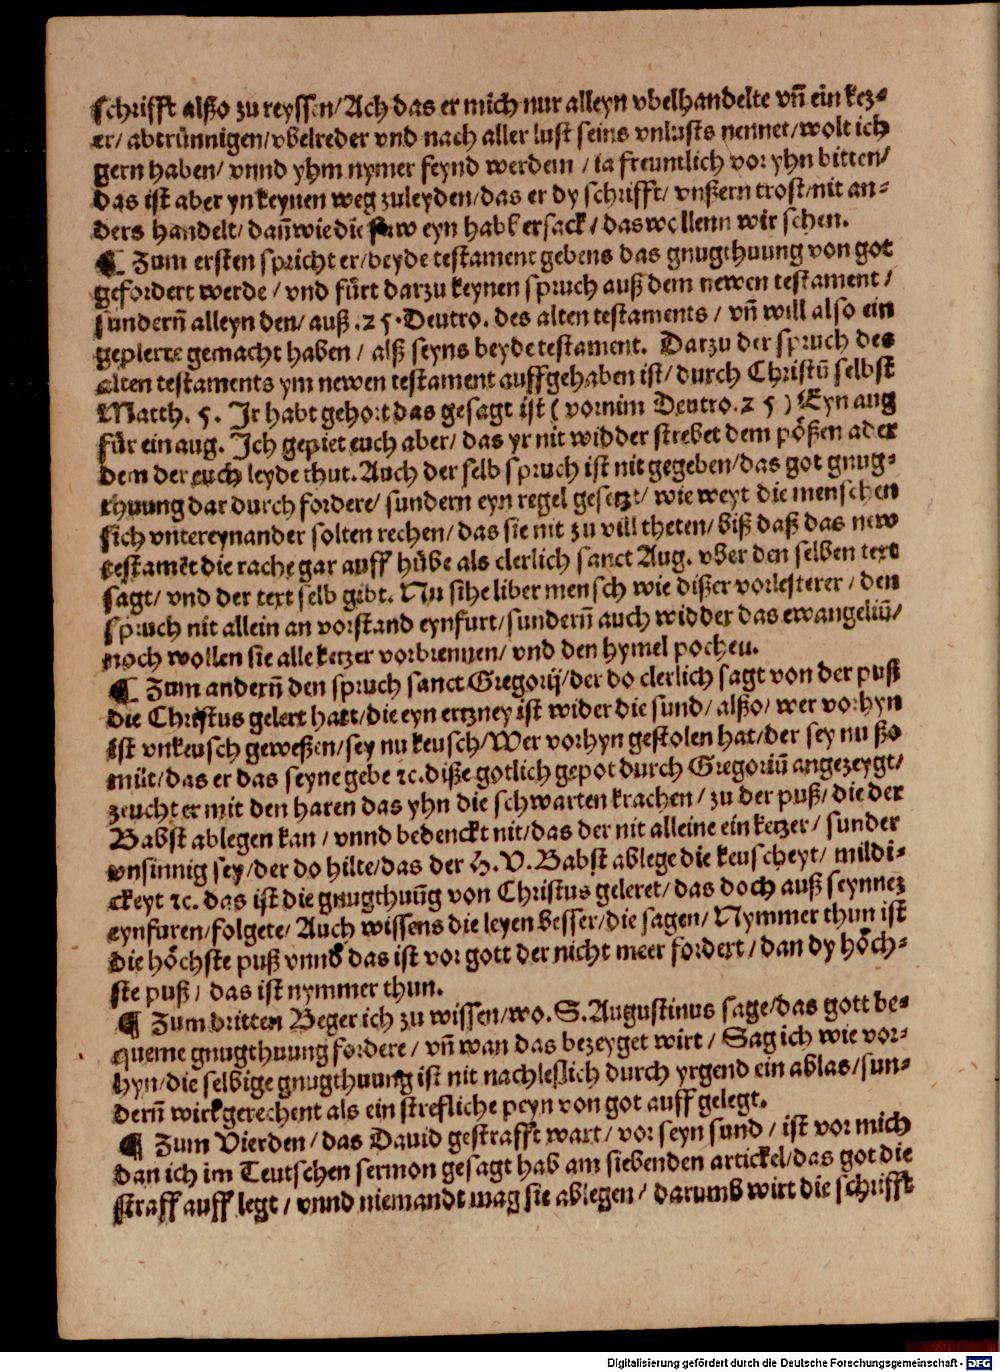 schrifft alßo zu reyssen/ Ach das er mich nur alleyn vbelhandelte vn̄ ein kez⸗
er/ abtrünnigen/ vbelreder vnd nach aller lust seins vnlusts nennet/ wolt ich
gern haben/ vnnd yhm nymer feynd werdem / ia freuntlich vor yhn bitten/
das ist aber yn keynen weg zuleyden/ das er dy schrifft/ vnßern trost/ nit an⸗
ders handelt/ dan̄ wie die saw eyn habbersack / das wollenn wir sehen.
¶ Zum ersten spricht er/ beyde testament gebens das gnugthuung von got
gefordert werde / vnd fürt darzu keynen spruch auß dem newen testament /
sundern̄ alleyn den/ auß .25. Deutro. des alten testaments / vn̄ will also ein
geplerre gemacht haben / alß seyns beyde testament. Darzu der spruch des
alten testaments ym newen testament auffgehaben ist/ durch Christū selbst
Matth. 5. Jr habt gehort das gesagt ist ( vornim Deutro. 25 ) Eyn aug
für ein aug. Jch gepiet euch aber/ das yr nit widder strebet dem pößen ader
dem der euch leyde thut. Auch der selb spruch ist nit gegeben/ das got gnug⸗
thuung dar durch fordere/ sundern eyn regel gesetzt/ wie weyt die menschen
sich vntereynander solten rechen/ das sie nit zu vill theten/ biß daß das new
testamēt die rache gar auff hübe als clerlich sanct Aug. vber den selben text
sagt/ vnd der text selb gibt. Nu sihe liber mensch wie dißer vorlesterer / den
spruch nit allein an vorstand eynfurt/ sundern̄ auch widder das ewangeliū/
noch wollen sie alle ketzer vorbrennen/ vnd den hymel pochen.
¶ Zum andern̄ den spruch sanct Gregorij/ der do clerlich sagt von der puß
die Christus gelert hatt/ die eyn ertzney ist wider die sund/ alßo/ wer vorhyn
ist vnkeusch geweßen/ sey nu keusch/ Wer vorhyn gestolen hat/ der sey nu ßo
müt/ das er das seyne gebe ꝛc. diße gotlich gepot durch Gregoriū angezeygt/
zeucht er mit den haren das yhn die schwarten krachen / zu der puß/ die der
Babst ablegen kan / vnnd bedenckt nit/ das der nit alleine ein ketzer / sunder
vnsinnig sey/ der do hilte/ das der H. V. Babst ablege die keuscheyt/ mildi⸗
ckeyt ꝛc. das ist die gnugthuūg von Christus geleret/ das doch auß seynnez
eynfuren/ folgete/ Auch wissens die leyen besser/ die sagen/ Nymmer thun ist
die höchste puß vnnd das ist vor gott der nicht meer fordert / dan dy höch⸗
ste puß / das ist nymmer thun.
¶ Zum dritten Beger ich zu wissen/ wo. S. Augustinus sage/ das gott be⸗
queme gnugthuung fordere / vn̄ wan das bezeyget wirt / Sag ich wie vor⸗
hyn/ die selbige gnugthuung ist nit nachleslich durch yrgend ein ablas/ sun⸗
dern̄ wirt gerechent als ein strefliche peyn von got auff gelegt.
¶ Zum Vierden / das Dauid gestrafft wart/ vor seyn sund / ist vor mich
dan ich im Teutschen sermon gesagt hab am siebenden artickel/ das got die
straff auff legt / vnnd niemandt mag sie ablegen / darumb wirt die schrifft
Digitalisierung gefördert durch die Deutsche Forschungsgemeinschaft - DFG